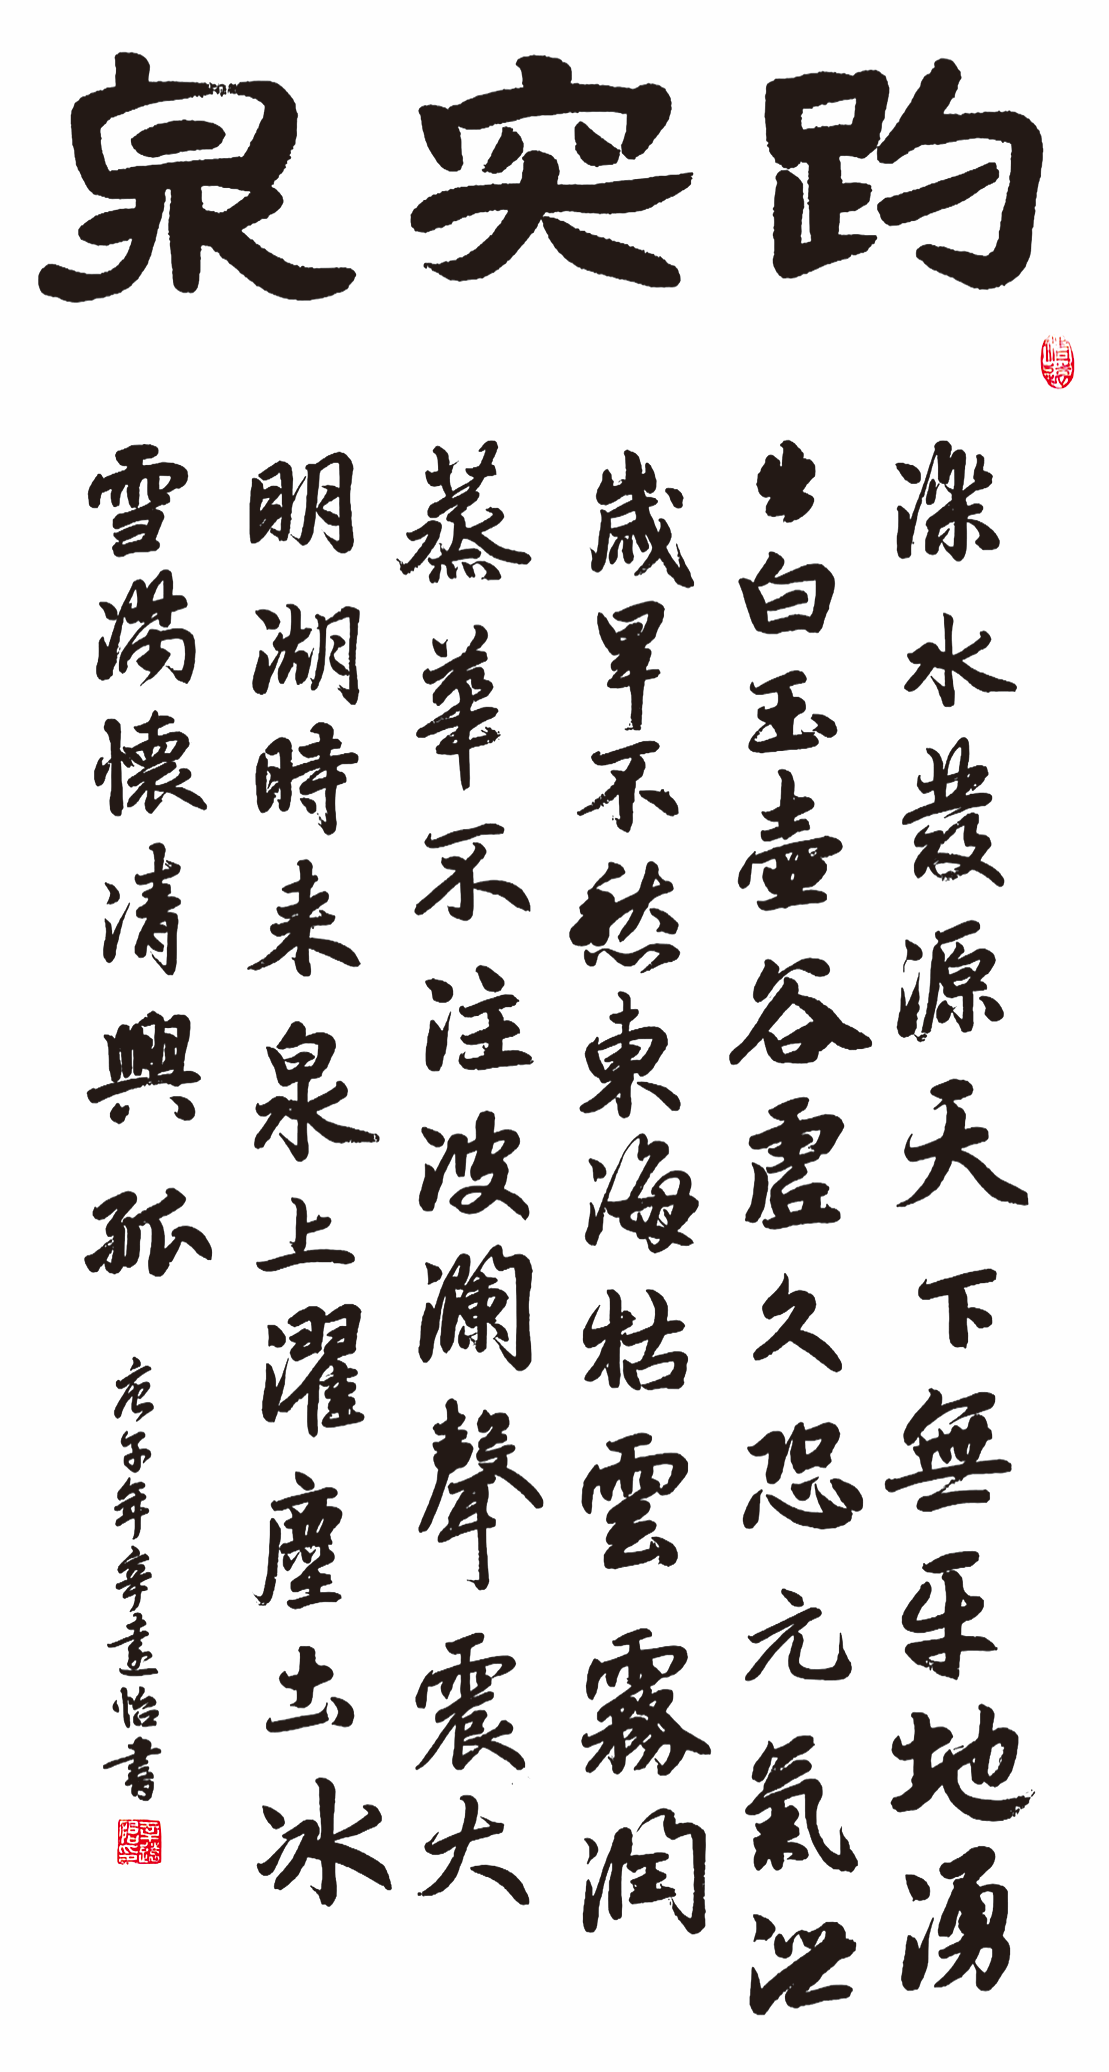 趵突泉
濼水發源天下無平地湧
出白玉壺谷虛久恐元氣洩
歲旱不愁東海枯雲霧潤
蒸華不注波瀾聲震大
明湖時来泉上濯塵土冰
雪滿懷清興孤
庚子年辛遠怡書